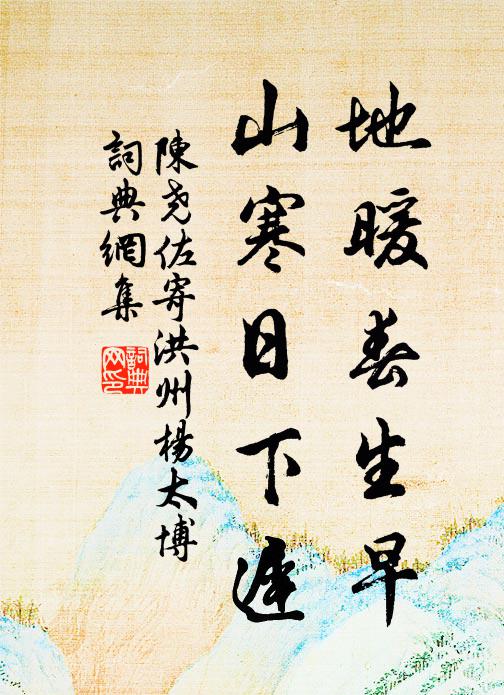 地暖春生早
山寒日下遲
陳堯佐寄洪州楊太博
詞典網集
詞典網印